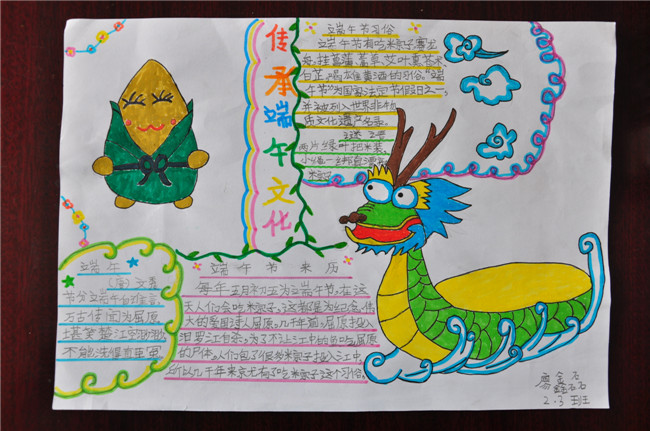 传承端午文化
端午节习俗
端午节有吃粽子,赛龙
舟,挂菖蒲、蒿草、艾叶,薰苍术、
白芷,喝雄黄酒的习俗。“端
午节”为国家法定节假日之一,
并被列入世界非物
质文化遗产名录。
谜
两片绿叶把米装,
小绳一绑
粽子
端午
(唐)文秀
节分端午自谁言,
万古传闻为屈原
堪笑楚江空渺渺,
不能洗得直臣冤
端午节来历
每年五月初五为立端午节,在这
天人们会吃粽子,这都是为纪念伟
大的爱国诗人屈原。几千年前,屈原投入
汨罗江自杀,为了不让江中的鱼吃屈原
的尸体,人们包了很多粽子投入江中,
所以几千年来就有了吃粽子这个习俗。
廖鑫石
2.3班